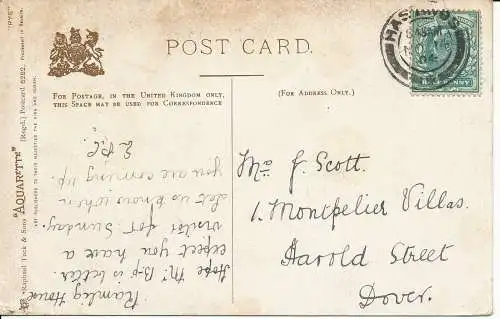 POST CARD.
FOR POSTAGE, IN THE UNITED KINGDOM ONLY,
THIS SPACE MAY BE USED FOR CORRESPONDENCE
(FOR ADDRESS ONLY.)
HALFPENNY
"RYE"
Raphael Tuck & Sons' "AQUARETTE" (Regd.) Postcard 6282.
ART PUBLISHERS TO THEIR MAJESTIES THE KING AND QUEEN.
Mrs J. Scott.
1. Montpelier Villas.
Harold Street
Dover.
House
Hope Mr. B-p is better.
expect you have a
visitor for Sunday.
Let us know when
you are coming up.